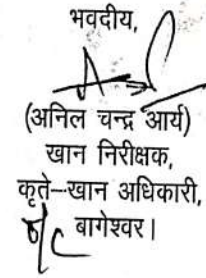 भवदीय,
(अनिल चन्द्र आर्य)
खान निरीक्षक,
कृते–खान अधिकारी,
बागेश्वर।